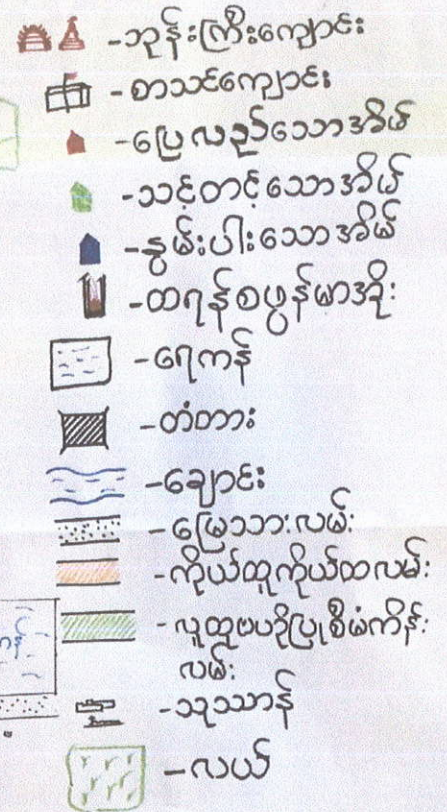 -ဘုန်းကြီးကျောင်း
-စာသင်ကျောင်း
-ပြေလည်သောအိမ်
-သင့်တင့်သောအိမ်
-နွမ်းပါးသောအိမ်
-ထရန်စဖွန်မာအိုး
-ရေကန်
-တံတား
-ချောင်း
-မြေသားလမ်း
-ကိုယ်ထူကိုယ်ထလမ်း
-လူထုဗဟိုပြုစီမံကိန်း
လမ်း
-သုသာန်
-လယ်